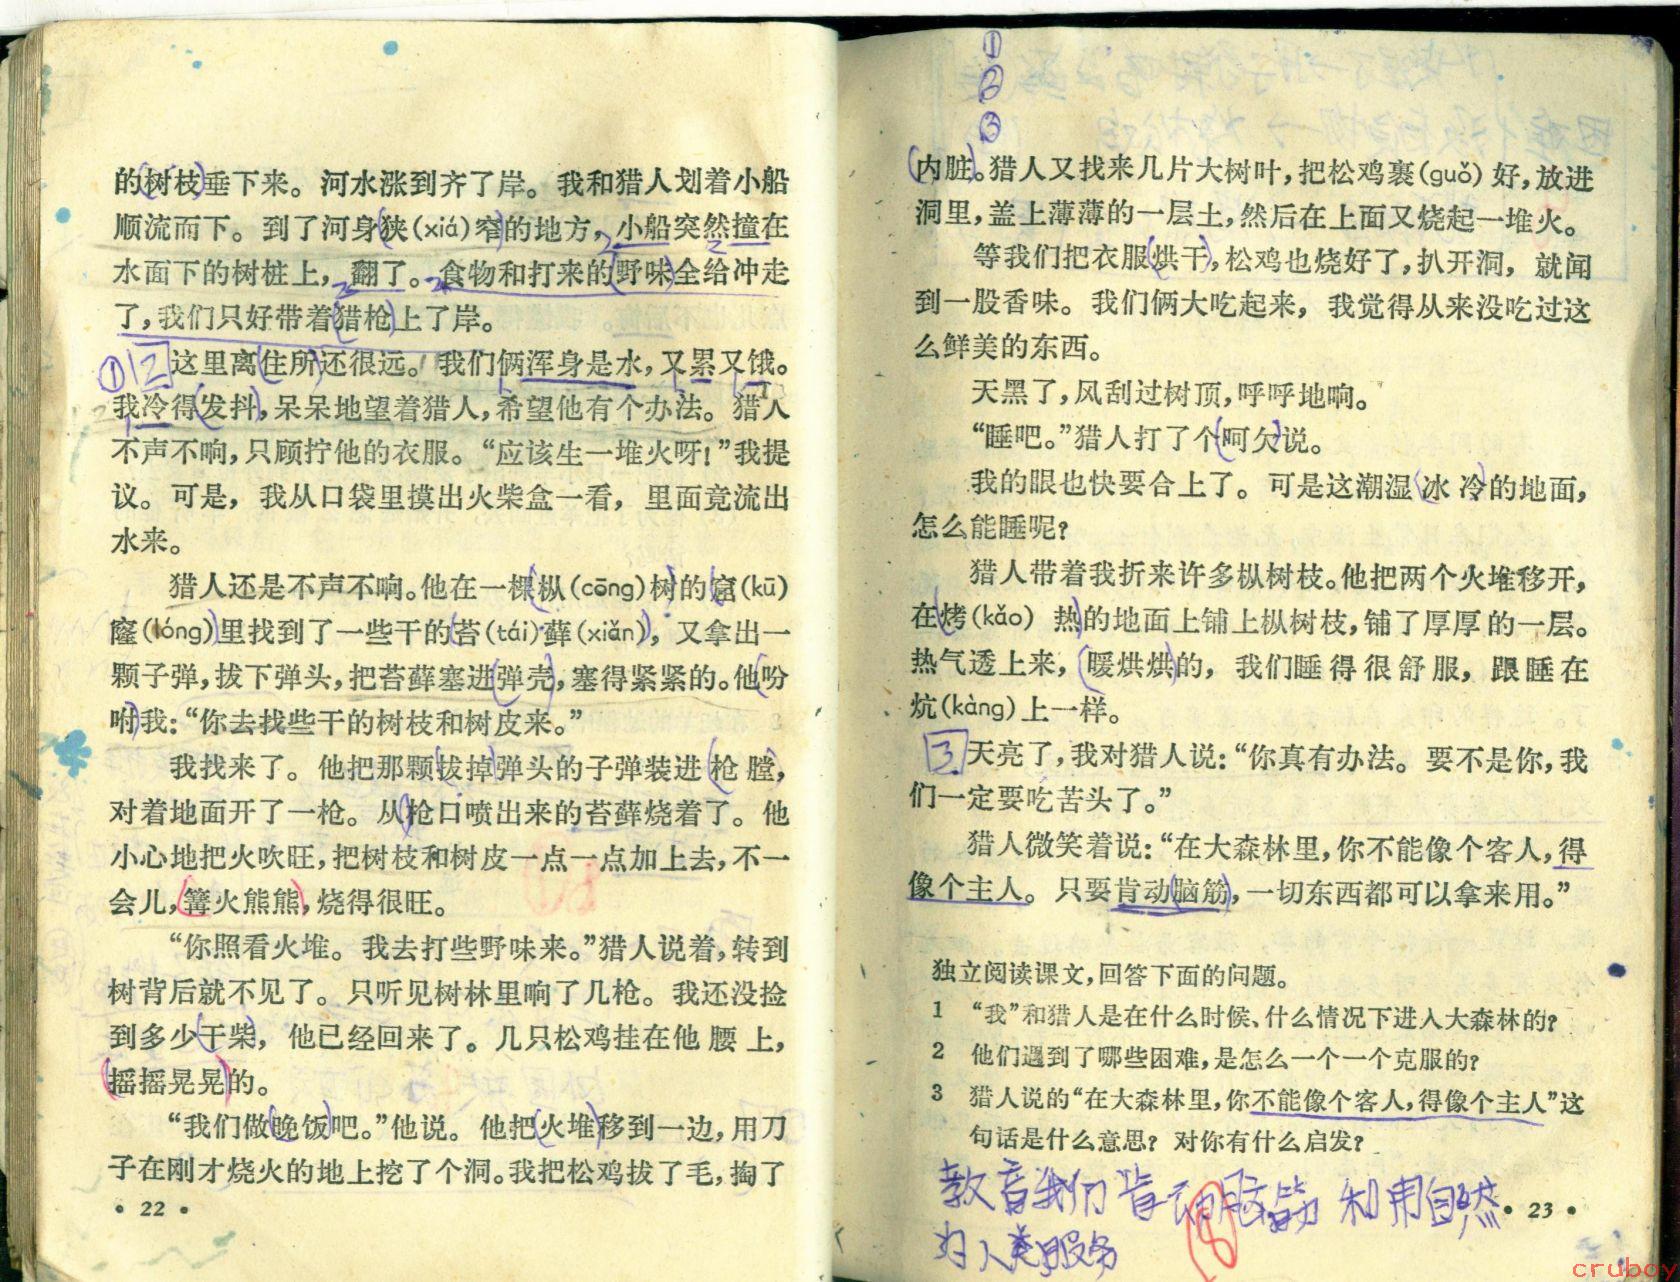 的树枝垂下来。河水涨到齐了岸。我和猎人划着小船
顺流而下。到了河身狭(xiá)窄的地方，小船突然撞在
水面下的树桩上，翻了。食物和打来的野味全给冲走
了，我们只好带着猎枪上了岸。
① 2 这里离住所还很远。我们俩浑身是水，又累又饿。
我冷得发抖，呆呆地望着猎人，希望他有个办法。猎人
不声不响，只顾拧他的衣服。“应该生一堆火呀！”我提
议。可是，我从口袋里摸出火柴盒一看，里面竟流出
水来。
猎人还是不声不响。他在一棵枞(cōng)树的窟(kū)
窿(lóng)里找到了一些干的苔(tái)藓(xiǎn)，又拿出一
颗子弹，拔下弹头，把苔藓塞进弹壳，塞得紧紧的。他吩
咐我：“你去找些干的树枝和树皮来。”
我找来了。他把那颗拔掉弹头的子弹装进枪膛，
对着地面开了一枪。从枪口喷出来的苔藓烧着了。他
小心地把火吹旺，把树枝和树皮一点一点加上去，不一
会儿，篝火熊熊，烧得很旺。
“你照看火堆。我去打些野味来。”猎人说着，转到
树背后就不见了。只听见树林里响了几枪。我还没捡
到多少干柴，他已经回来了。几只松鸡挂在他腰上，
摇摇晃晃的。
“我们做晚饭吧。”他说。他把火堆移到一边，用刀
子在刚才烧火的地上挖了个洞。我把松鸡拔了毛，掏了
• 22 •
①
②
③
内脏。猎人又找来几片大树叶，把松鸡裹(guǒ)好，放进
洞里，盖上薄薄的一层土，然后在上面又烧起一堆火。
等我们把衣服烘干，松鸡也烧好了，扒开洞，就闻
到一股香味。我们俩大吃起来，我觉得从来没吃过这
么鲜美的东西。
天黑了，风刮过树顶，呼呼地响。
“睡吧。”猎人打了个呵欠说。
我的眼也快要合上了。可是这潮湿冰冷的地面，
怎么能睡呢？
猎人带着我折来许多枞树枝。他把两个火堆移开，
在烤(kǎo)热的地面上铺上枞树枝，铺了厚厚的一层。
热气透上来，暖烘烘的，我们睡得很舒服，跟睡在
炕(kàng)上一样。
3 天亮了，我对猎人说：“你真有办法。要不是你，我
们一定要吃苦头了。”
猎人微笑着说：“在大森林里，你不能像个客人，得
像个主人。只要肯动脑筋，一切东西都可以拿来用。”
独立阅读课文，回答下面的问题。
1 “我”和猎人是在什么时候、什么情况下进入大森林的？
2 他们遇到了哪些困难，是怎么一个一个克服的？
3 猎人说的“在大森林里，你不能像个客人，得像个主人”这
句话是什么意思？对你有什么启发？
教育我们肯动脑筋 利用自然
为人类服务
• 23 •
cruboy